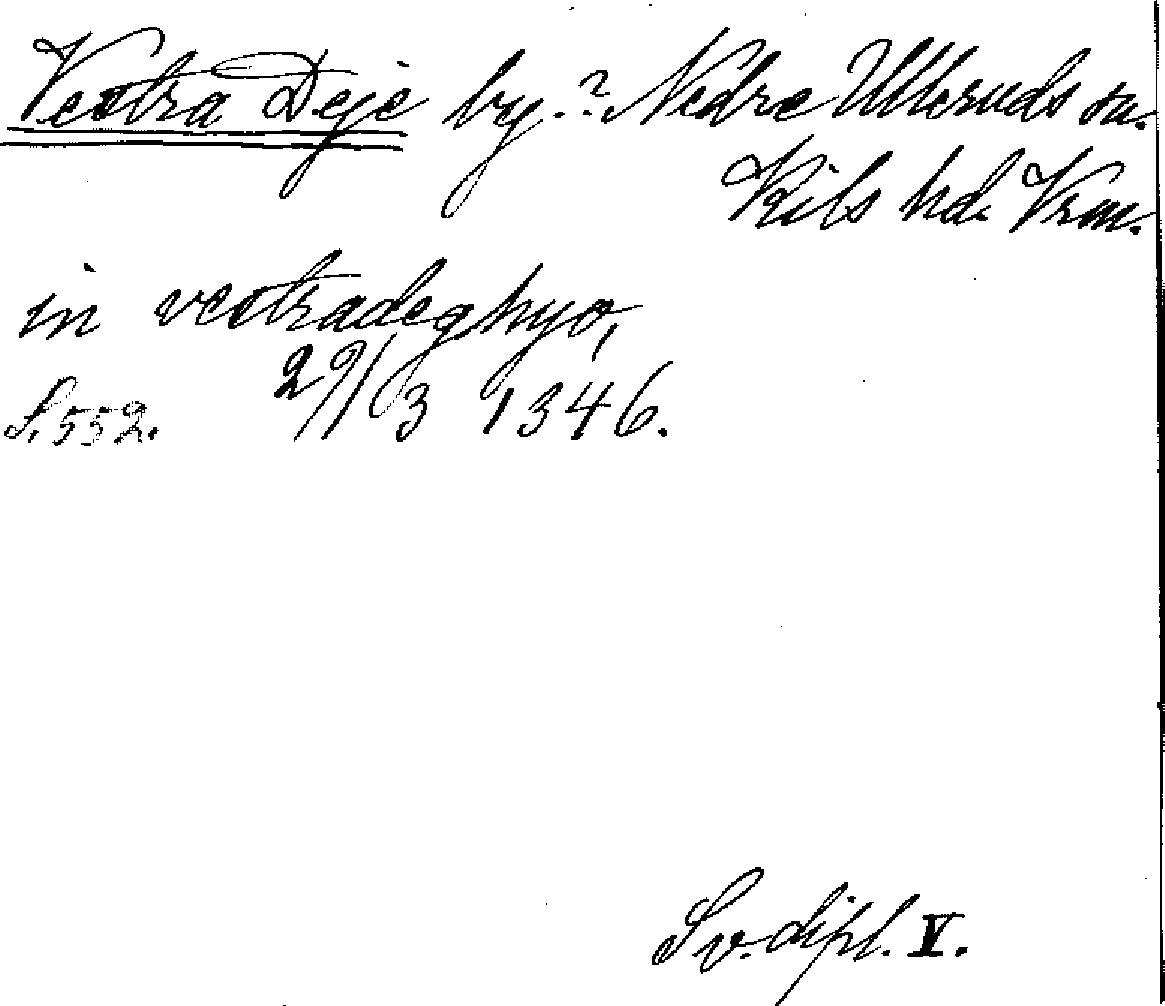 Vestra Deje by.? Nedre Ulleruds sn.
Kils hd. Vrm.
in vestradeghyo,
S. 552. 29/3 1346.
Sv. dipl. V.